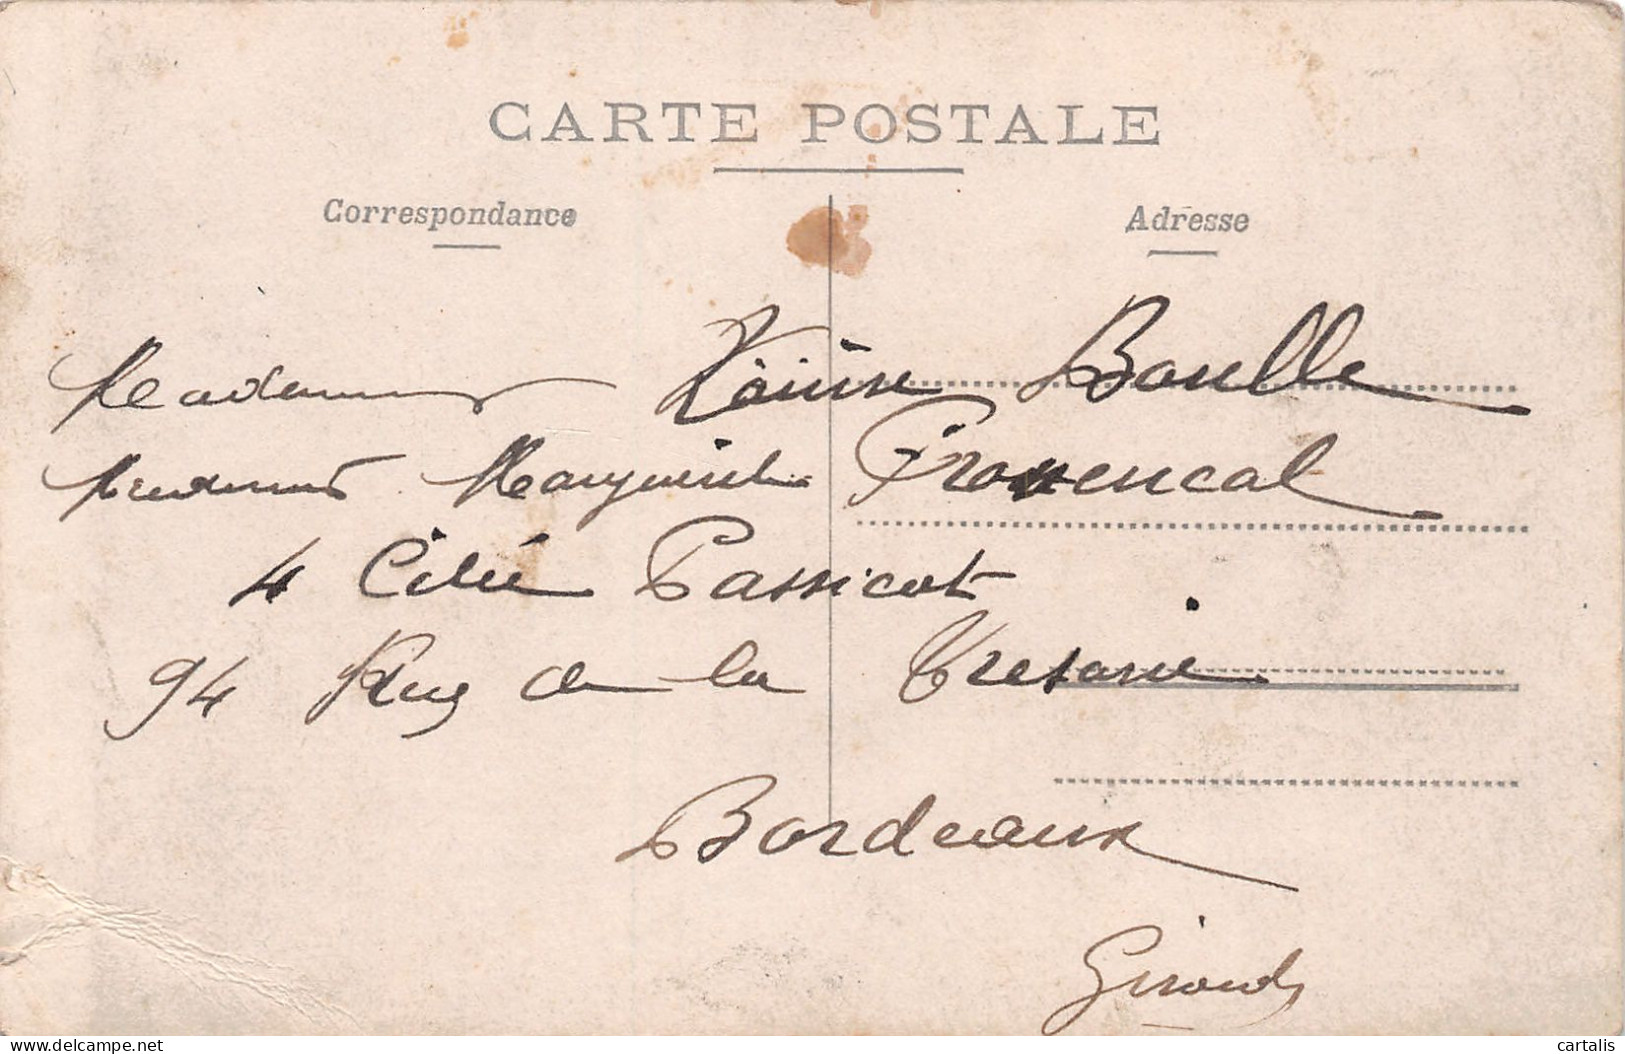 CARTE POSTALE
Correspondance
Adresse
Louise Boulle
Marguerite Provencal
4 Cité Passicot
94 Rue de la Tresorie
Bordeaux
Gironde
delcampe.net
cartalis